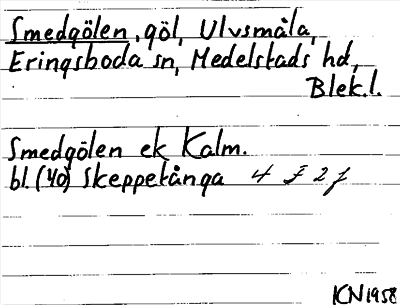 Smedgölen, göl, Ulvsmåla,
Eringsboda sn, Medelstads hd,
Blek.l.
Smedgölen ek Kalm.
bl.(40) Skeppetånga 4 F 2 f
KN 1958